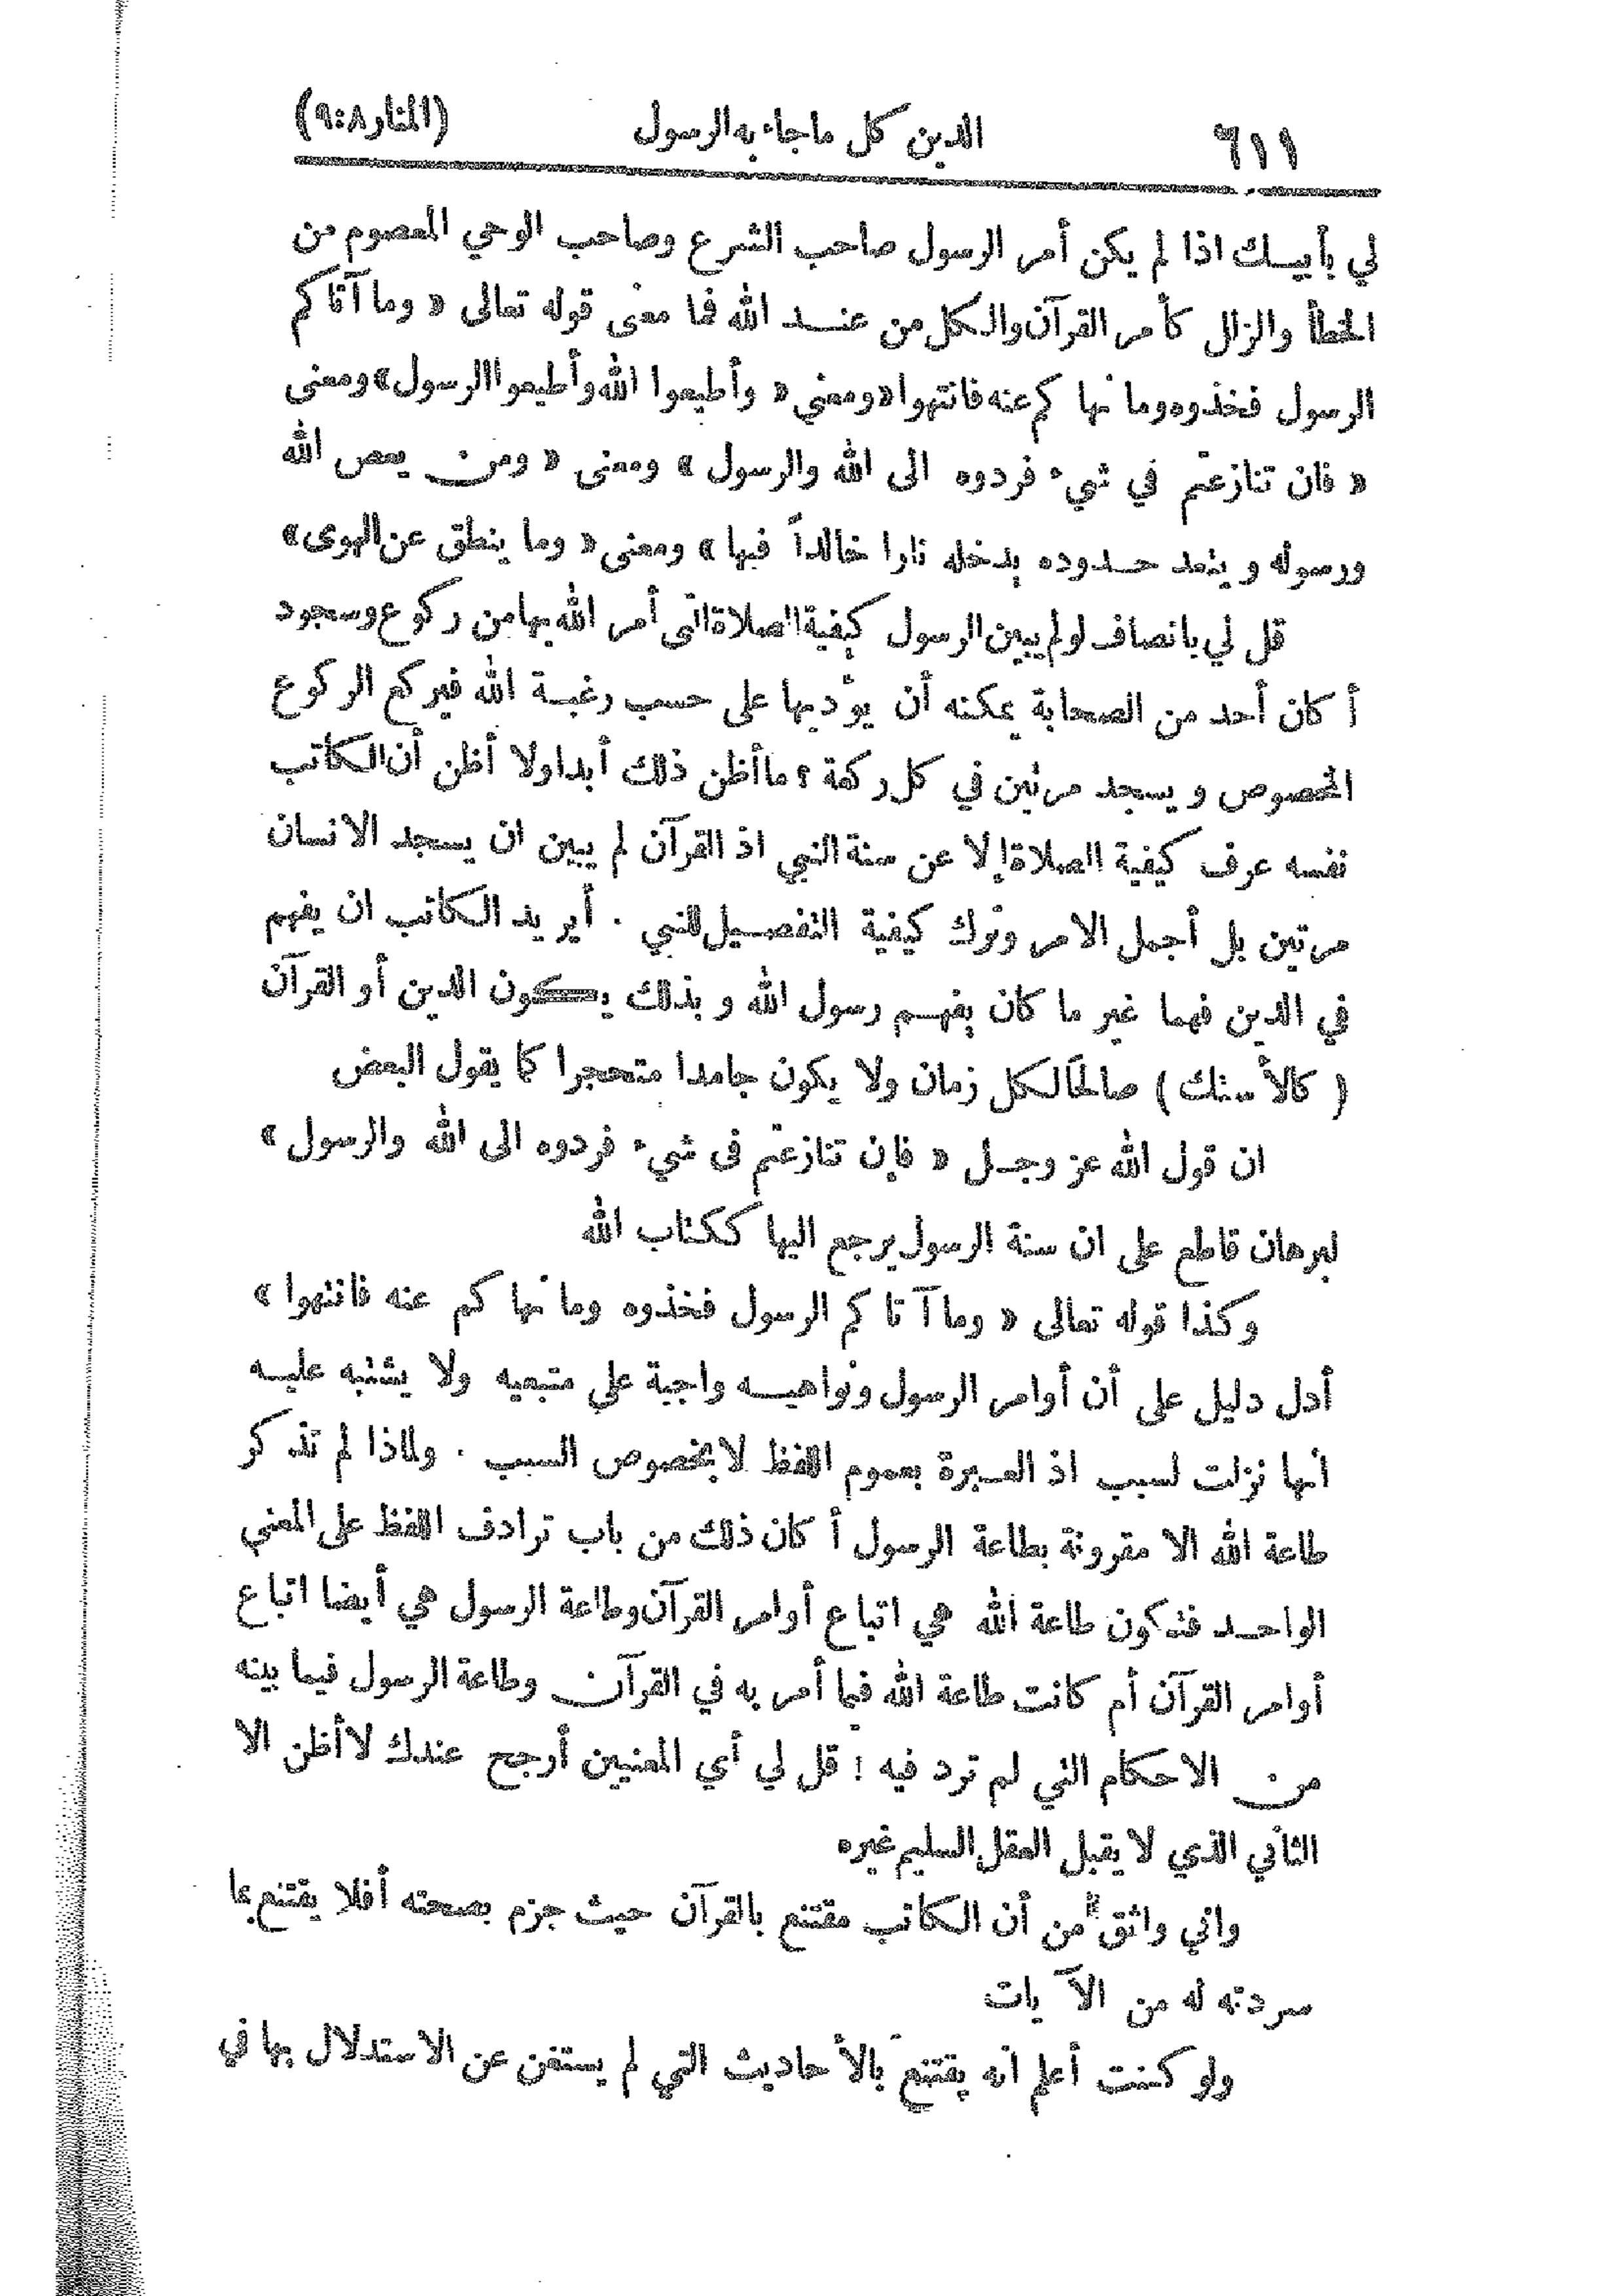 ٦١١ الدين كل ماجاء به الرسول (المنار ٨:٩)
لي بأبيـك اذا لم يكن أمر الرسول صاحب الشرع وصاحب الوحي المعصوم من
الخطأ والزلل كأمر القرآن والكل من عنـد الله فما معنى قوله تعالى « وما آتاكم
الرسول فخذوه وما نهاكم عنه فانتهوا « ومعنى « وأطيعوا الله وأطيعوا الرسول » ومعنى
« فان تنازعتم في شيء فردوه الى الله والرسول » ومعنى « ومن يعص الله
ورسوله ويتعد حـدوده يدخله نارا خالداً فيها » ومعنى « وما ينطق عن الهوى »
قل لي بانصاف لو لم يبين الرسول كيفية الصلاة التى أمر الله بها من ركوع وسجود
أكان أحد من الصحابة يمكنه أن يؤديها على حسب رغبـة الله فيركع الركوع
المخصوص ويسجد مرتين في كل ركعة ؟ ما أظن ذلك أبدا ولا أظن أن الكاتب
نفسه عرف كيفية الصلاة إلا عن سنة النبي اذ القرآن لم يبين ان يسجد الانسان
مرتين بل أجمل الامر وترك كيفية التفصـيل للنبي . أيريد الكاتب ان يفهم
في الدين فهما غير ما كان يفهـم رسول الله وبذلك يـكون الدين أو القرآن
( كالأستك ) صالحاً لكل زمان ولا يكون جامدا متحجرا كما يقول البعض
ان قول الله عز وجـل « فإن تنازعتم فى شيء فردوه الى الله والرسول »
لبرهان قاطع على ان سنة الرسول يرجع اليها ككتاب الله
وكذا قوله تعالى « وما آتاكم الرسول فخذوه وما نهاكم عنه فانتهوا »
أدل دليل على أن أوامر الرسول ونواهيـه واجبة على متبعيه ولا يشتبه عليـه
انها نزلت لسبب اذ العـبرة بعموم اللفظ لا بخصوص السبب . ولماذا لم تذكر
طاعة الله الا مقرونة بطاعة الرسول أكان ذلك من باب ترادف اللفظ على المعنى
الواحـد فتكون طاعة الله هي اتباع أوامر القرآن وطاعة الرسول هي أيضا اتباع
أوامر القرآن أم كانت طاعة الله فيما أمر به في القرآن وطاعة الرسول فيما بينه
من الاحكام التي لم ترد فيه ؛ قل لي أي المعنيين أرجح عندك لا أظن الا
الثاني الذي لا يقبل العقل السليم غيره
واني واثق من أن الكاتب مقتنع بالقرآن حيث جزم بصحته أفلا يقتنع بما
سردته له من الآيات
ولو كنت أعلم انه يقتنع بالأحاديث التي لم يستغن عن الاستدلال بها في